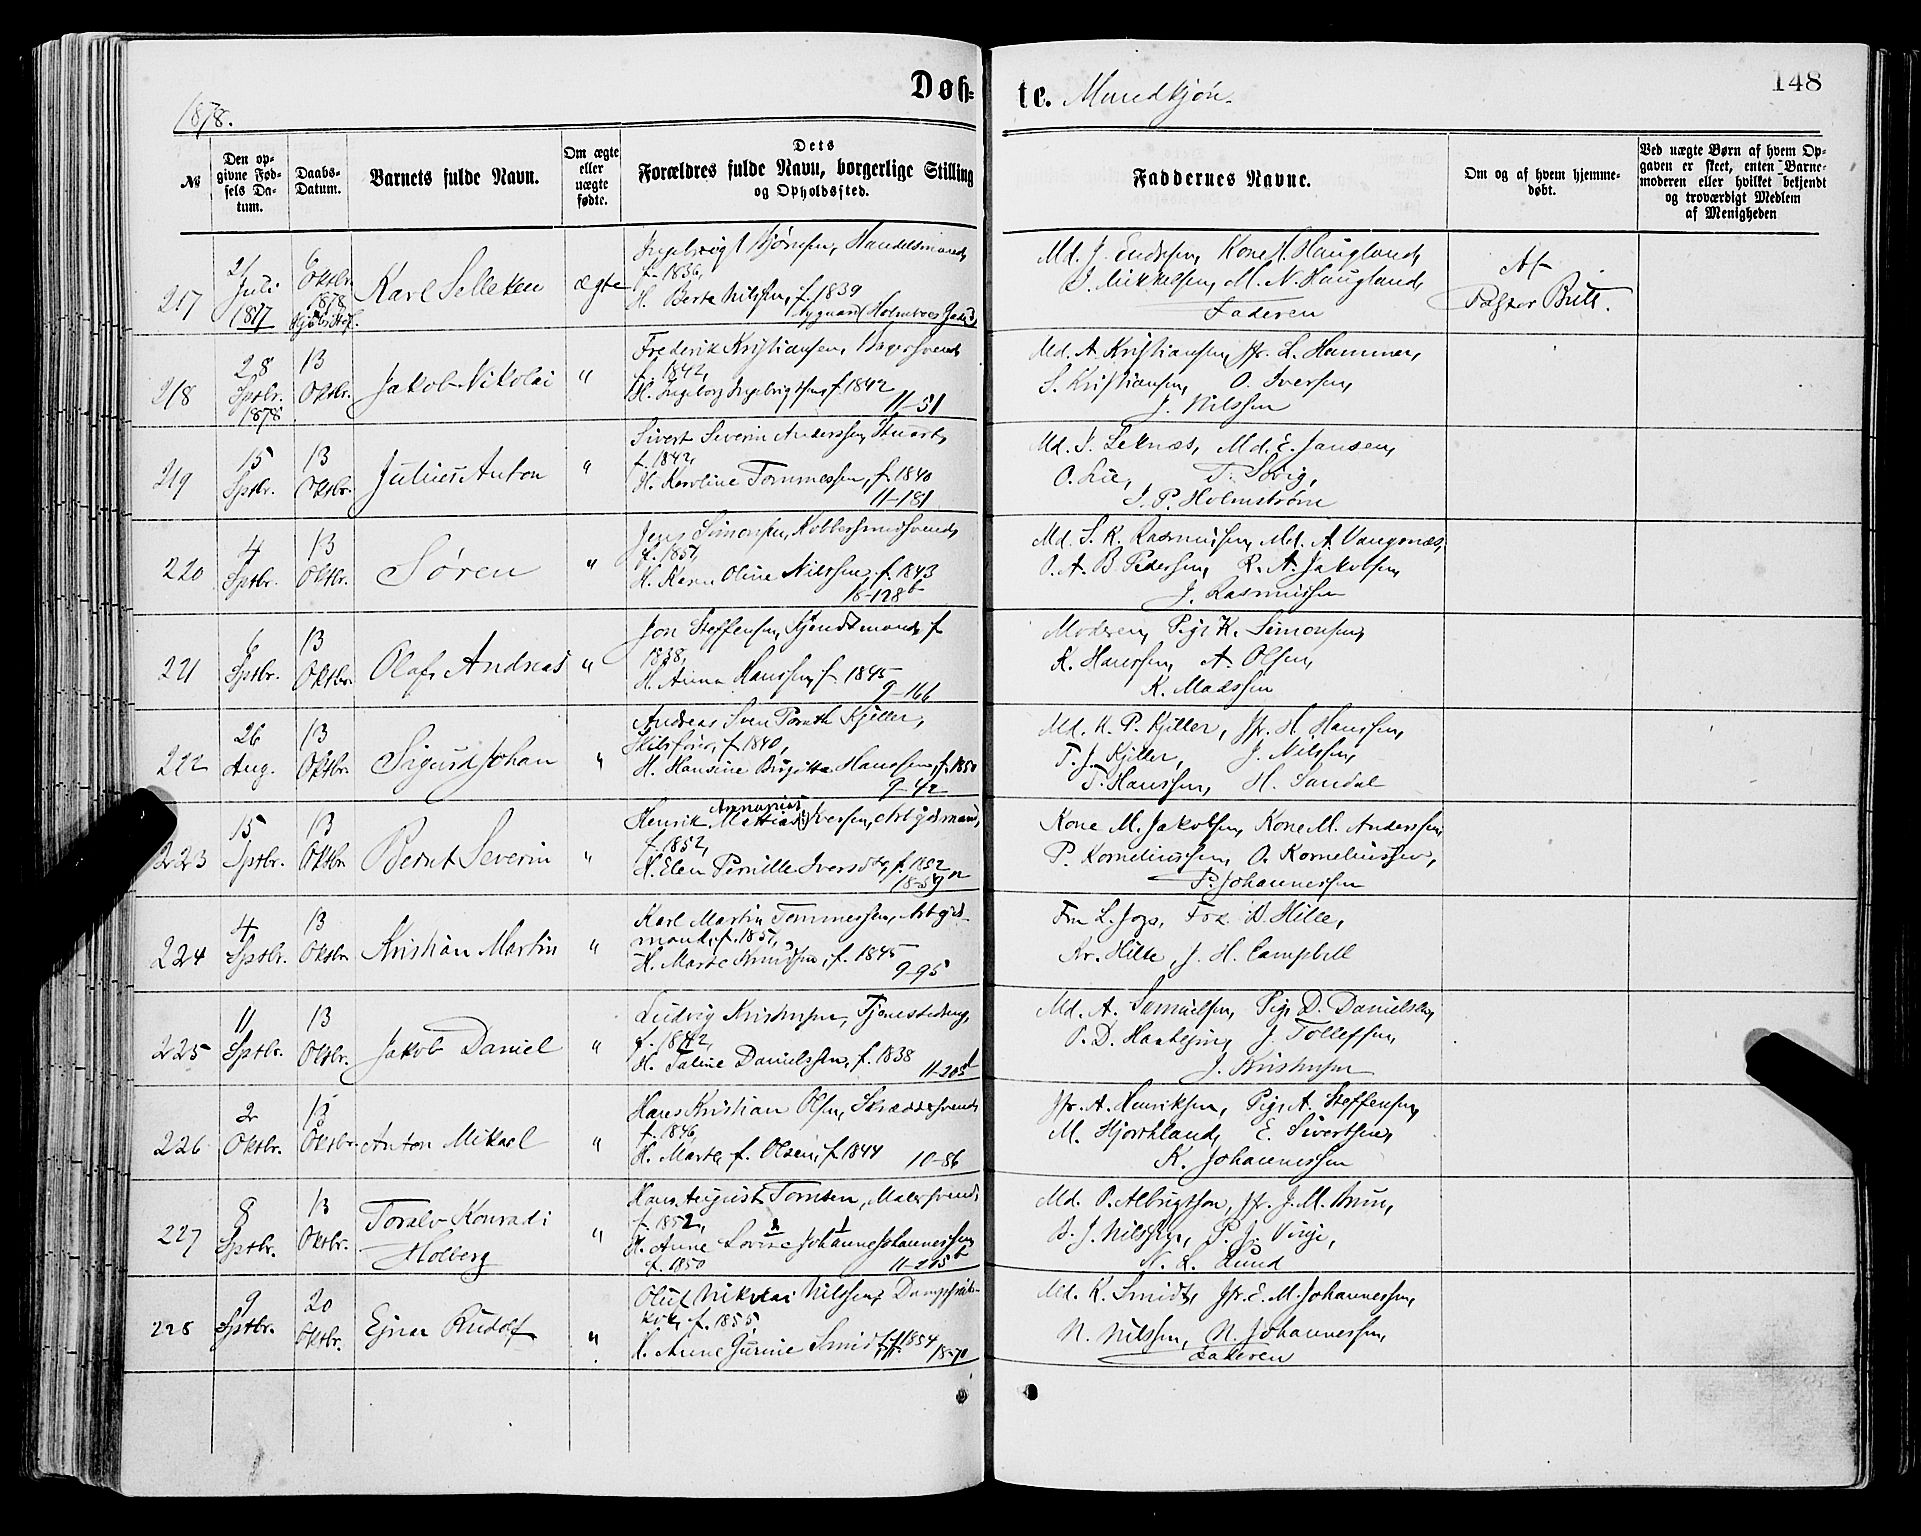 Døb-
te. Mandkjøn.
148
1878.
№
Den op-
givne Fød-
sels Da-
tum.
Daabs-
Datum.
Barnets fulde Navn.
Om ægte
eller
uægte
fødte.
Dets
Forældres fulde Navn, borgerlige Stilling
og Opholdssted.
Faddernes Navne.
Om og af hvem hjemme-
døbt.
Ved uægte Børn af hvem Op-
gaven er skeet, enten Barne-
moderen eller hvilket bekjendt
og troværdigt Medlem
af Menigheden
217
21
Juli
1877
6
Oktbr.
1878
Karl Selleken
ægte
Handelsmand,
f. 1836,
H. Berte Nilssen, f. 1839
Md. J. Endresen, Kone A. Haugland,
J. Mikkelsen, M. N. Haugland,
Faderen
Af
Pastor
218
28
Sptbr.
1878
13
Oktbr.
Jakob Nikolai
"
Frederik Kristiansen, Bagersvend,
f. 1842,
H. Ingeborg Ingebrigtsen, f. 1842
11-51
Md. A. Kristiansen, Jfr. L. Hammer,
S. Kristiansen, O. Iversen,
J. Nilssen
219
15
Sptbr.
13
Oktbr.
Julius Anton
"
Sivert Severin Anderssen, Stuert,
f. 1842,
H. Karoline Tommessen, f. 1840
11-181
Md. J. Leknæs, Md. E. Jansen,
O. Lie, T. Søvig,
J. P. Holmstrøm
220
4
Sptbr.
13
Oktbr.
Søren
"
Jens Simonsen, Kobbersmedsvend,
f. 1851,
H. Karen Oline Nilssen, f. 1843
18-128b
Md. S. K. Rasmussen, Md. A. Vangsnæs,
O. A. B. Pedersen, R. A. Jakobsen,
J. Rasmussen
221
6
Sptbr.
13
Oktbr.
Olaf Andreas
"
Jon Steffensen, f.
1838,
H. Anna Hanssen, f. 1845
9-166
Moderen, Pige K. Simonsen,
K. Hanssen, A. Olsen,
K. Madssen
222
26
Aug.
13
Oktbr.
Sigurd Johan
"
Andreas Sven Kjeller,
Skibsfører, f. 1840,
H. Hansine Birgitta Hanssen, f. 1850
9-42
Md. K. P. Kjeller, Jfr. H. Hanssen,
T. J. Kjeller, J. Nilssen,
T. Hanssen, H. Sandal
223
15
Sptbr.
13
Oktbr.
Bernt Severin
"
Henrik Mattias Iversen, Arbgidsmand,
f. 1852,
H. Elen Pernille Iversdtr, f. 1852
18-59n
Kone M. Jakobsen, Kone M. Anderssen,
P. Korneliussen, O. Korneliussen,
P. Johannessen
224
4
Sptbr.
13
Oktbr.
Kristian Martin
"
Karl Martin Tommessen, Arbgids-
mand, f. 1851,
H. Marte Knudsen, f. 1845
9-95
Fru L. Jogs, Frk. D. Hille,
Kr. Hille, J. H. Campbell
225
11
Sptbr.
13
Oktbr.
Jakob Daniel
"
Ludvig Kristensen, Tjenestedreng,
f. 1842,
H. Taline Danielssen, f. 1838
11-205d
Md. A. Samuelsen, Pige D. Danielsen,
J. Tollefsen,
J. Kristensen
226
2
Oktbr.
13
Oktbr.
Anton Mikael
"
Hans Kristian Olsen, Skræddersvend,
f. 1846,
H. Marte f. Olsen, f. 1844
10-86
Jfr. A. Henriksen, Pige A. Steffensen,
M. Hjorthland, E. Sivertsen,
K. Johannessen
227
8
Sptbr.
13
Oktbr.
Toralv Konradi
Holberg
"
Hans August Tomsen, Malersvend,
f. 1852,
H. Anne Lovise Johanne Johannessen,
f. 1850
11-215b
Md. O. Albrigtsen, Jfr. J. M. Brun,
B. J. Nilssen, P. J. Vinje,
N. L. Lund
228
9
Sptbr.
20
Oktbr.
Ejnar Rudolf
"
Oluf Nikolai Nilssen, Dampskibs-
kok, f. 1855,
H. Anne Gurine Smidt, f. 1854
18-70
Md. K. Smidt, Jfr. E. M. Johannessen,
N. Nilssen, N. Johannessen,
Faderen